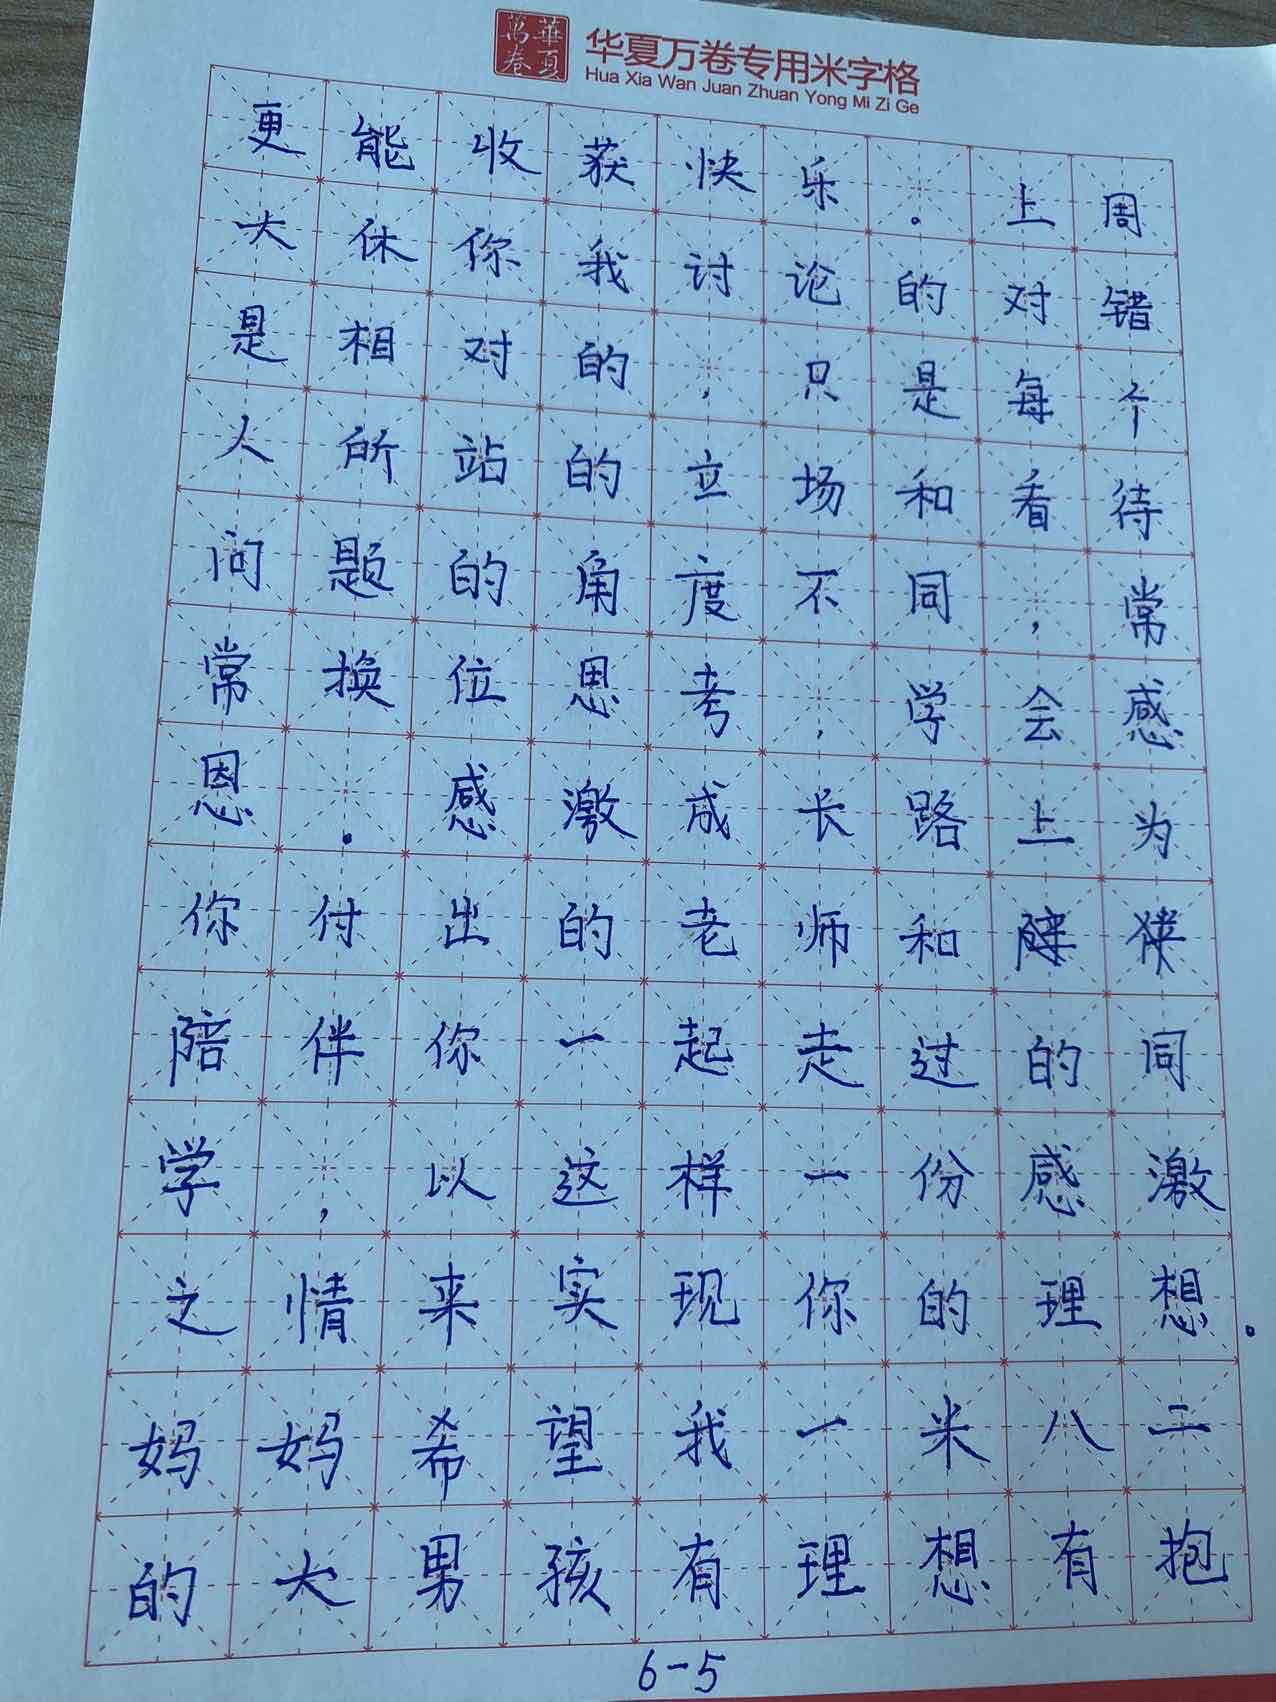 萬卷 華夏
华夏万卷专用米字格
Hua Xia Wan Juan Zhuan Yong Mi Zi Ge
更能收获快乐。上周
大休你我讨论的对错
是相对的，只是每个
人所站的立场和看待
问题的角度不同，常
常换位思考，学会感
恩。感激成长路上为
你付出的老师和
陪伴你一起走过的同
学，以这样一份感激
之情来实现你的理想。
妈妈希望我一米八二
的大男孩有理想有抱
6-5